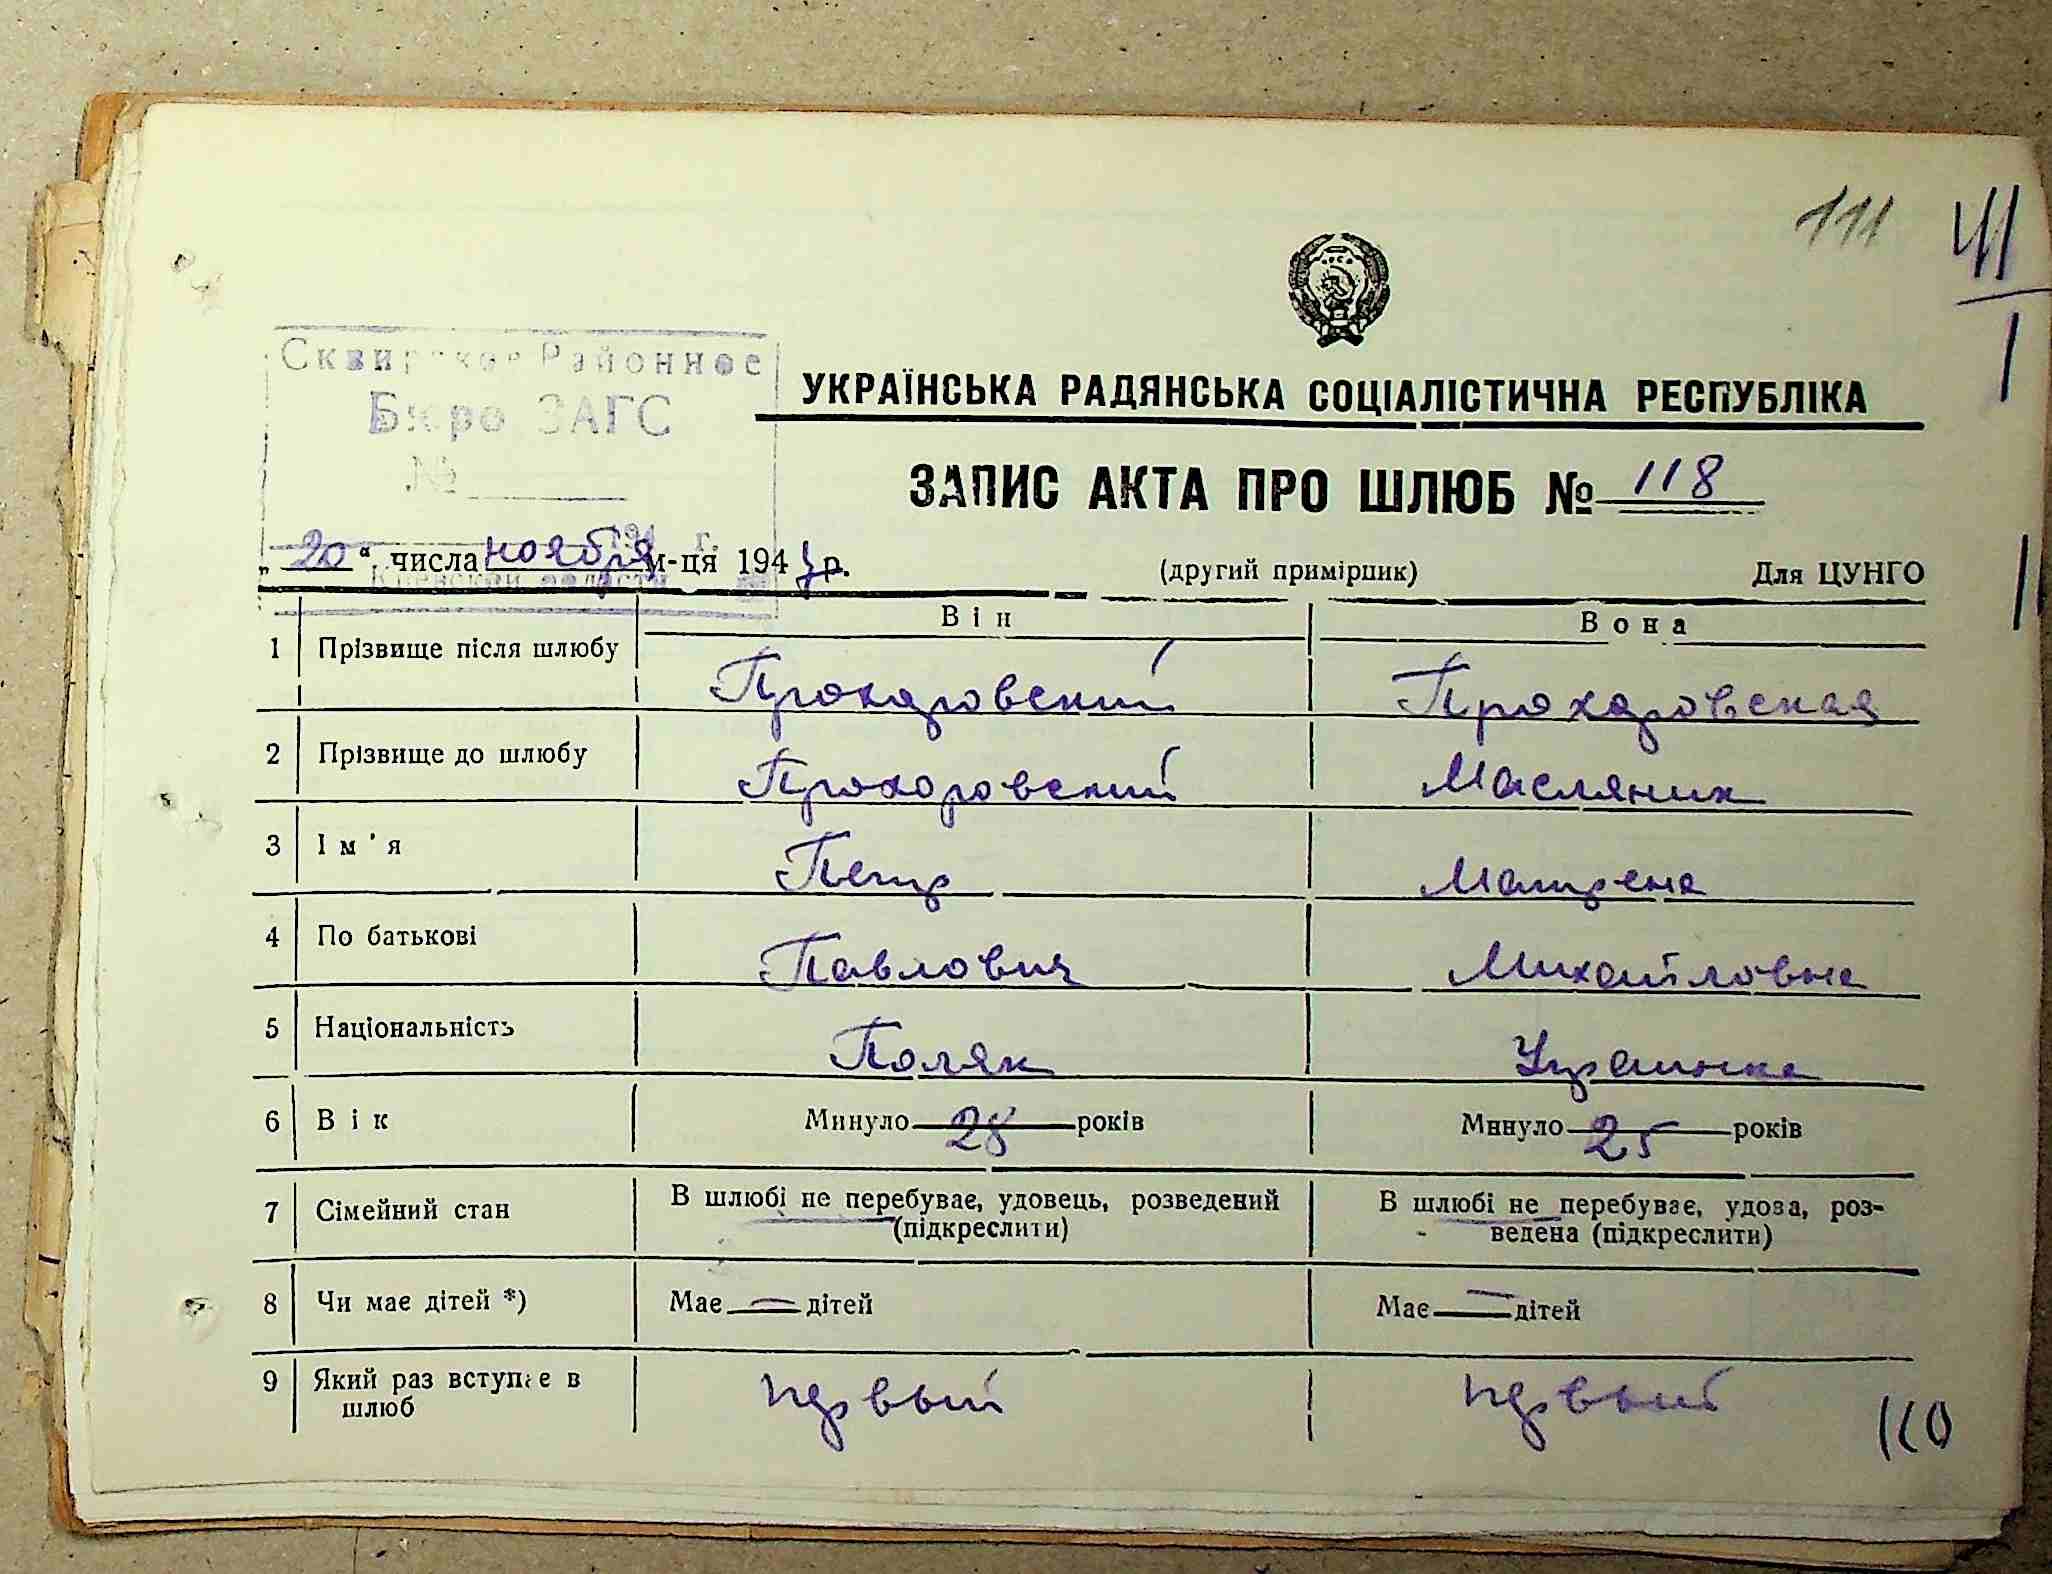 111
Сквирское Районное
Бюро ЗАГС
№
194 г.
Киевской области
УКРАЇНСЬКА РАДЯНСЬКА СОЦІАЛІСТИЧНА РЕСПУБЛІКА
ЗАПИС АКТА ПРО ШЛЮБ № 118
„20“ числа ноября м-ця 194 р.
(другий примірник) Для ЦУНГО
Він Вона
1 Прізвище після шлюбу Прохоровский Прохоровская
2 Прізвище до шлюбу Прохоровский Масляник
3 Ім'я Петр Матрена
4 По батькові Павлович Михайловна
5 Національність Поляк Украинка
6 Вік Минуло 28 років Минуло 25 років
7 Сімейний стан В шлюбі не перебуває, удовець, розведений (підкреслити) В шлюбі не перебуває, удова, роз-
ведена (підкреслити)
8 Чи має дітей *) Має — дітей Має — дітей
9 Який раз вступає в шлюб первый первый
110